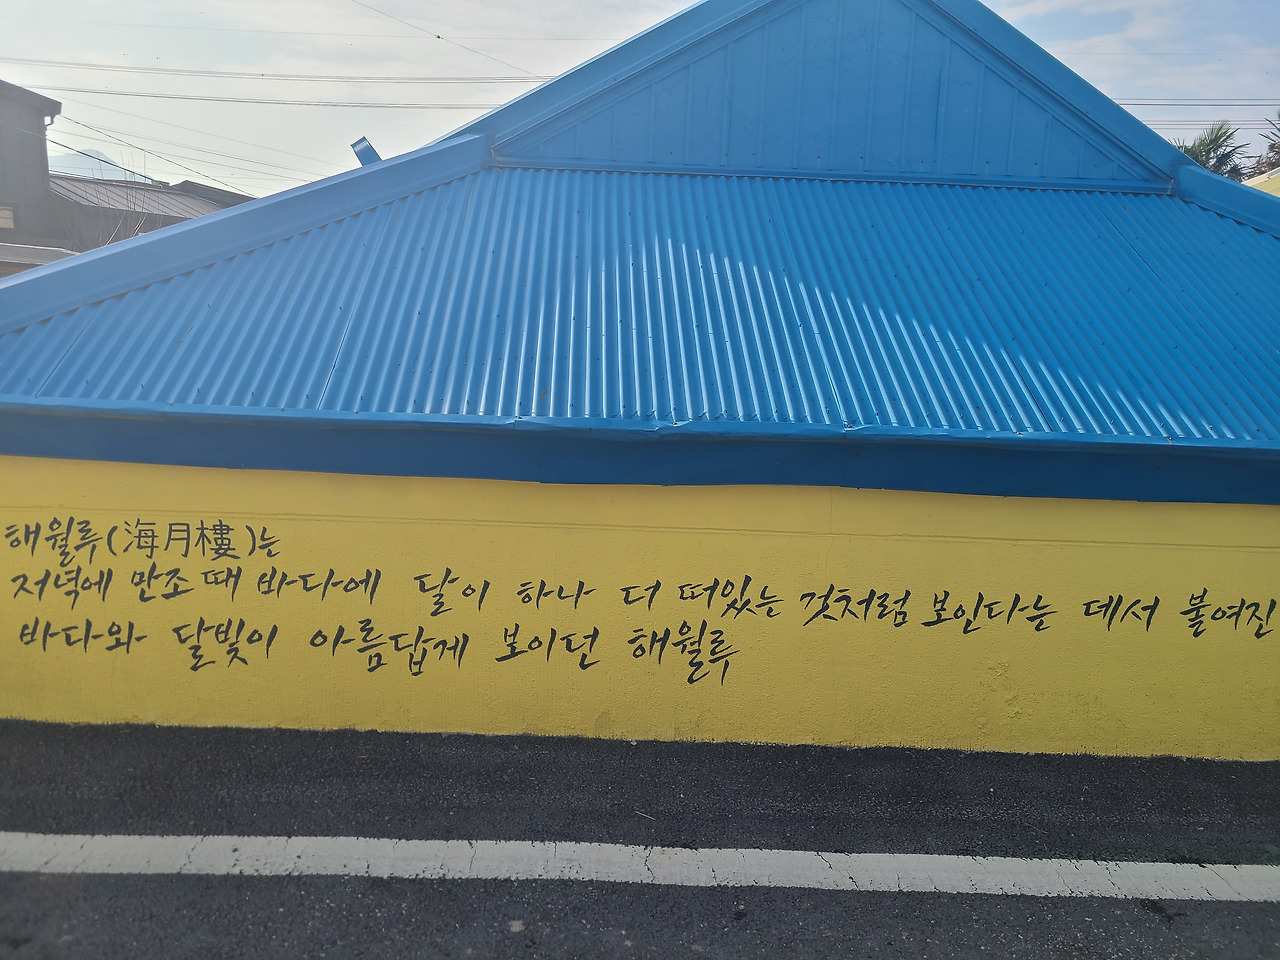 해월루(海月樓)는
저녁에 만조 때 바다에 달이 하나 더 떠있는 것처럼 보인다는 데서 붙여진
바다와 달빛이 아름답게 보이던 해월루